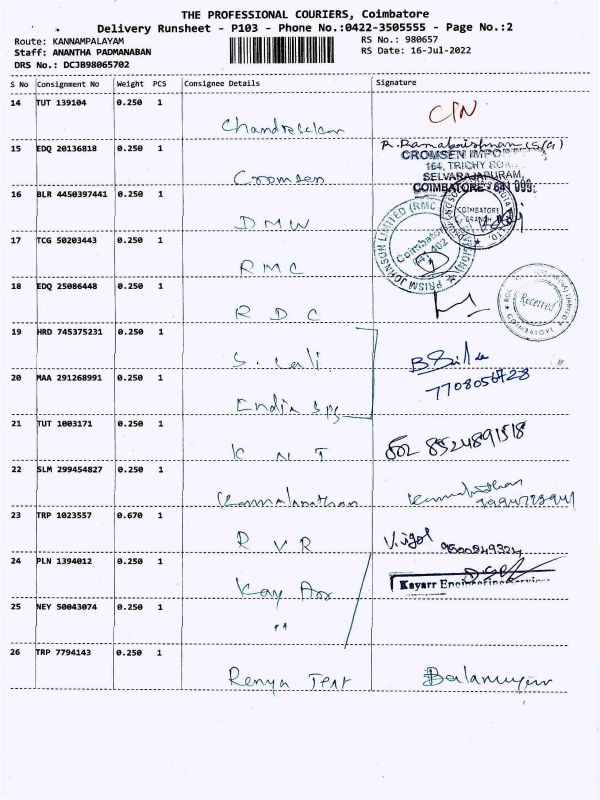 THE PROFESSIONAL COURIERS, Coimbatore
Delivery Runsheet - P103 - Phone No.:0422-3505555 - Page No.:2
Route: KANNAMPALAYAM
RS No.: 980657
Staff: ANANTHA PADMANABAN
RS Date: 16-Jul-2022
DRS No.: DCJB98065702
S No Consignment No Weight PCS Consignee Details Signature
14 TUT 139104 0.250 1
Chandrasekar
15 EDQ 20136818 0.250 1
Cromsen
CROMSEN IMPO
164, TRICHY ROAD
SELVARAJAPURAM,
COIMBATORE - 641
16 BLR 4450397441 0.250 1
DMW
COIMBATORE
17 TCG 50203443 0.250 1
RMC
PRISM JOHNSON LIMITED (RMC
Coimbatore
18 EDQ 25086448 0.250 1
RDC
Received
COIMBATORE
19 HRD 745375231 0.250 1
S. Cali
20 MAA 291268991 0.250 1
India
7708056728
21 TUT 1003171 0.250 1
K N T
8524891518
22 SLM 299454827 0.250 1
Kamalanathan
23 TRP 1023557 0.670 1
R V R
24 PLN 1394012 0.250 1
Kay Arr
Kayarr Engineering Services
25 NEY 50043074 0.250 1
"
26 TRP 7794143 0.250 1
Renya Text
Balamurugan